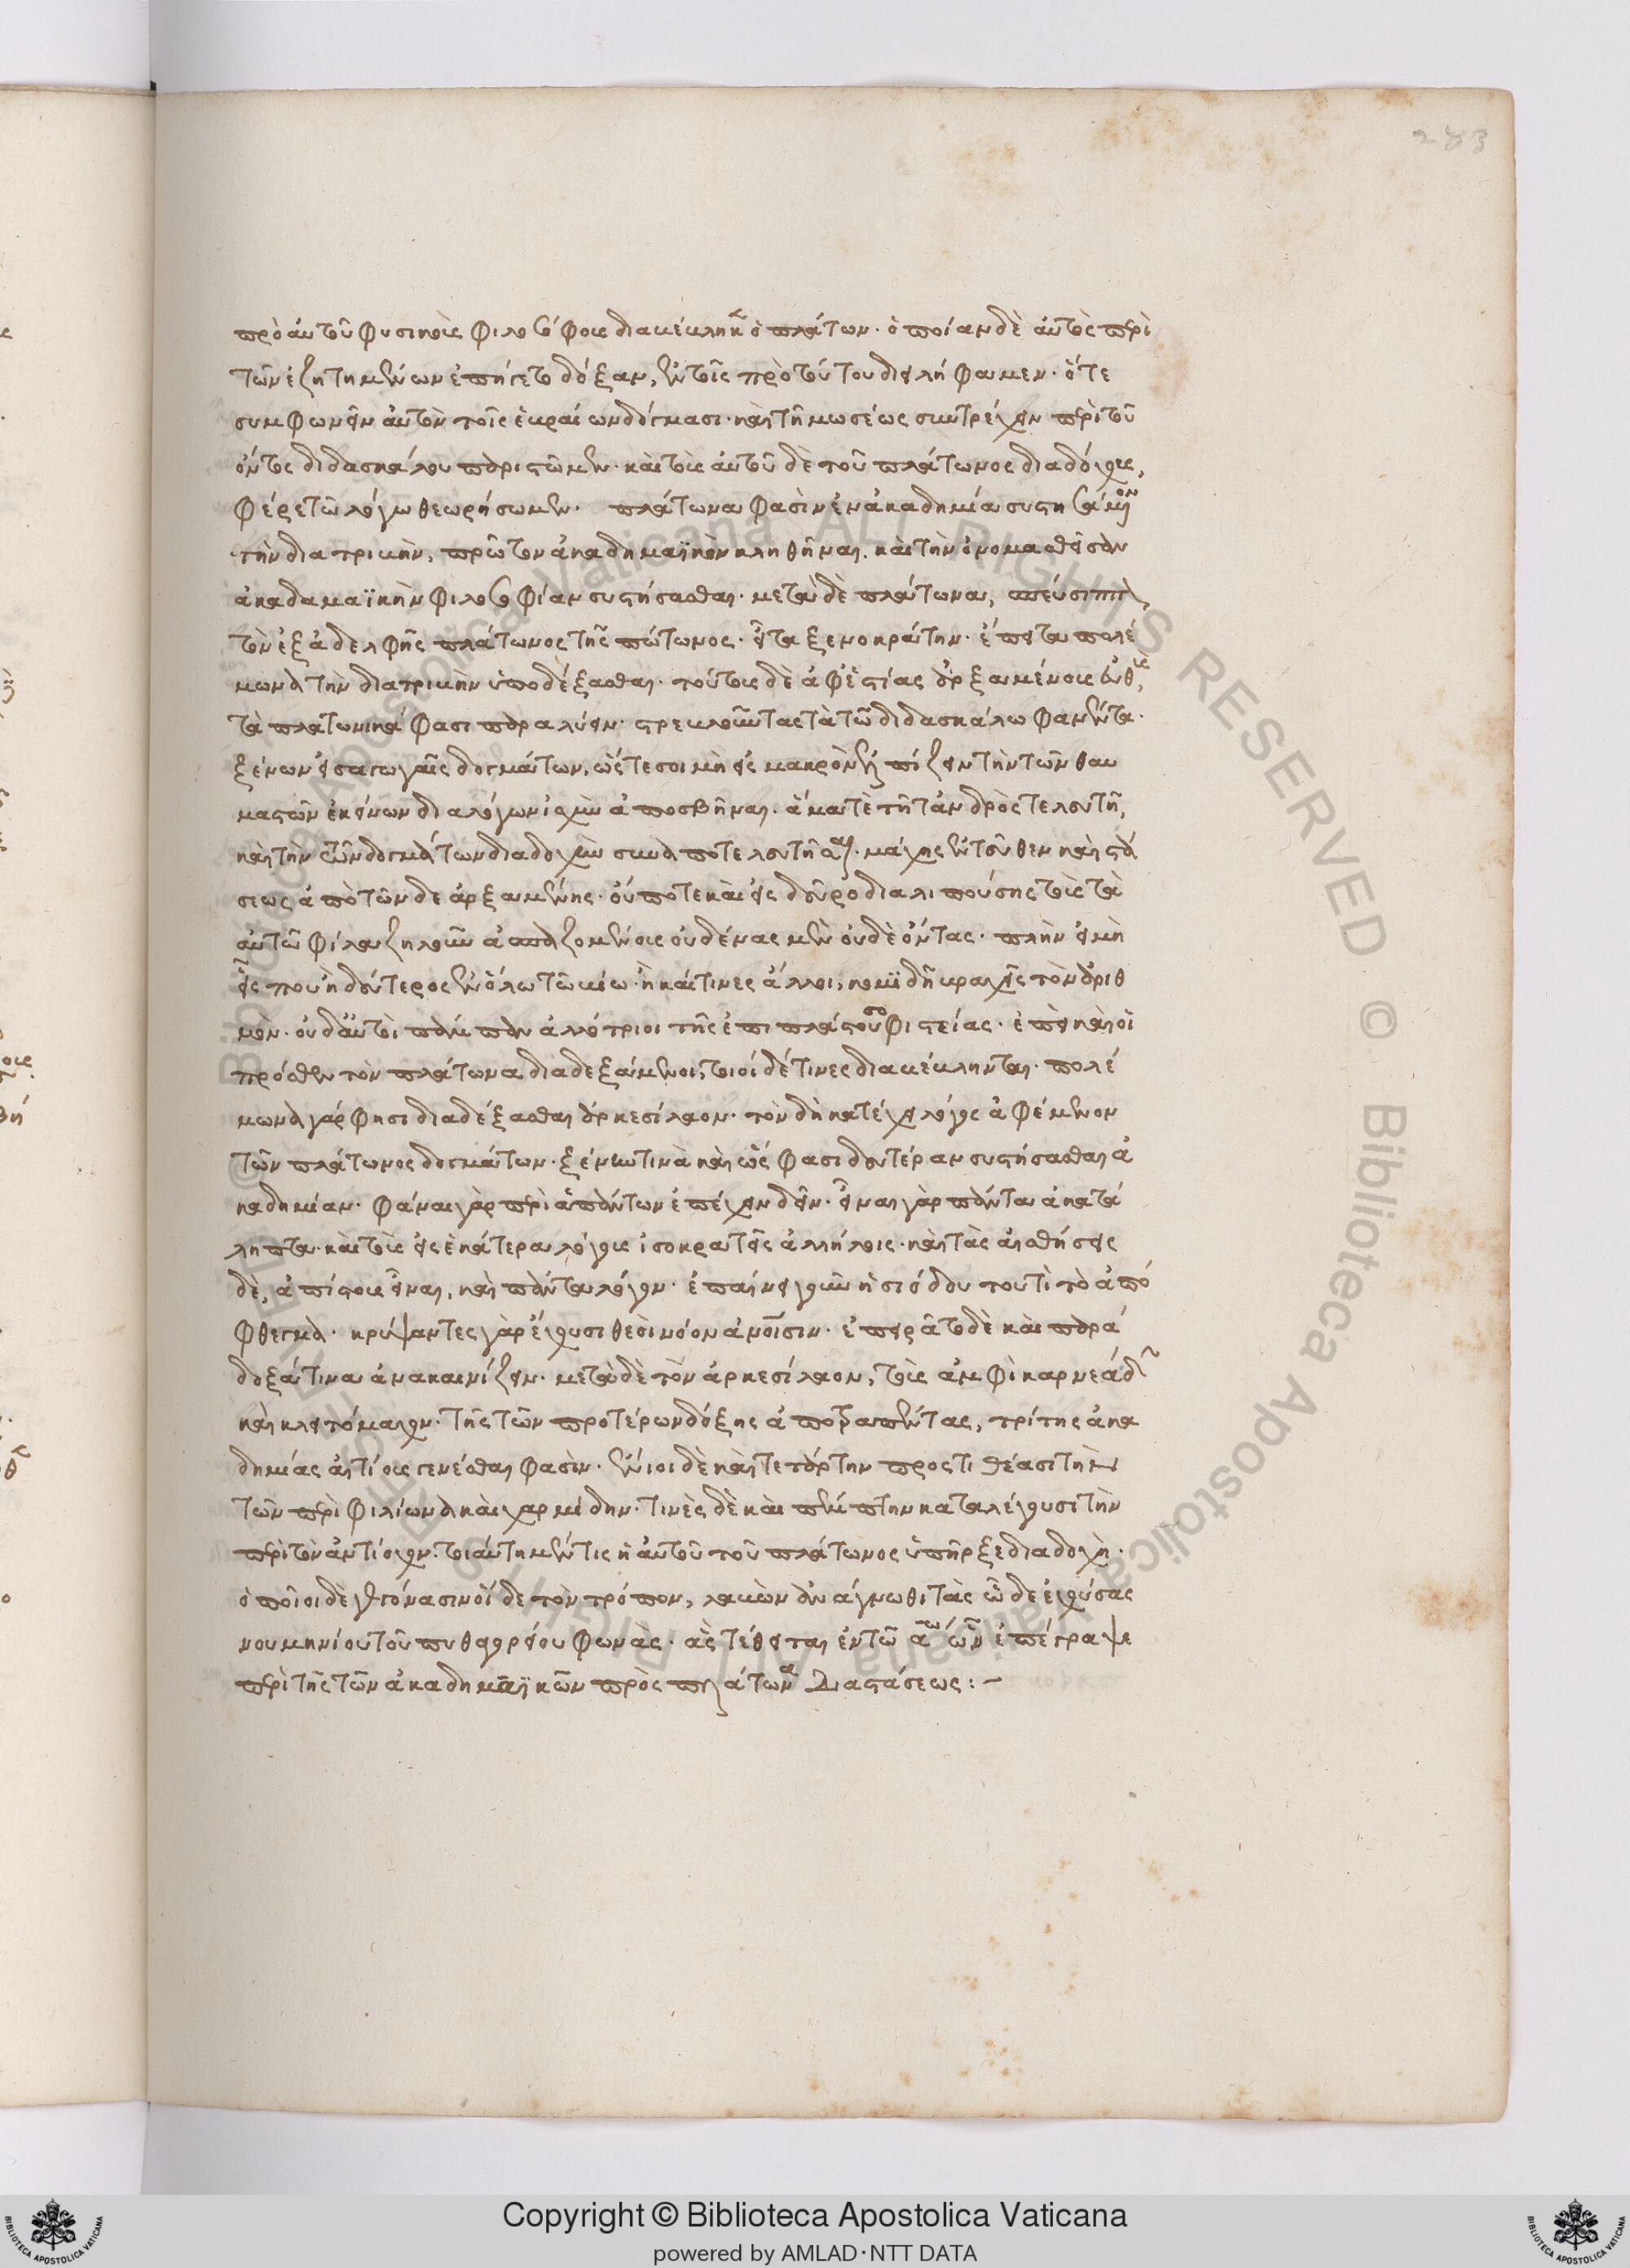 283
πρὸ αὐτοῦ φυσικοῖς φιλοσόφοις διακέκληκε ὁ πλάτων· ὁποίαν δὲ αὐτὸς περὶ
τῶν ἐζητημένων ἐπήγετο δόξαν, ἐν τοῖς πρὸ τούτου διειλήφαμεν· ὅτε
συμφωνεῖν αὐτὸν τοῖς ἑβραίων δόγμασι· καὶ τῇ μωσέως συντρέχειν περὶ τοῦ
ὄντος διδασκάλου παριστῶμεν· καὶ τοὺς αὐτοῦ δὲ τοῦ πλάτωνος διαδόχους,
φέρε τῷ λόγῳ θεωρήσωμεν· πλάτωνα φασὶν ἐν ἀκαδημία συστησάμενον
τὴν διατριβὴν, πρῶτον ἀκαδημαϊκὸν κληθῆναι· καὶ τὴν ὀνομασθεῖσαν
ἀκαδαμαϊκὴν φιλοσοφίαν συστήσασθαι· μετὰ δὲ πλάτωνα, σπεύσιππον,
τὸν ἐξ ἀδελφῆς πλάτωνος τῆς πώτωνος· εἶτα ξενοκράτην· ἔπειτα πολέ
μωνα τὴν διατριβὴν ὑποδέξασθαι· τούτους δὲ ἀφ' ἑστίας ἀρξαμένους εὐθὺς
τὰ πλατωνικά φασι παραλύειν· στρεβλοῦντας τὰ τῶ διδασκάλω φανέντα·
ξένων εἰσαγωγαῖς δογμάτων, ὥστε σοι μὴ εἰς μακρὸν ἐλπίζειν τὴν τῶν θαυ
μαστῶν ἐκείνων διαλόγων ἰσχὺν ἀποσβῆναι· ἅμα τὲ τῆ τἀνδρὸς τελευτῆ,
καὶ τὴν τῶν δογμάτων διαδοχὴν συναποτελευτῆσαι· μάχης ἐντεῦθεν καὶ στά
σεως ἀπὸ τῶνδε ἀρξαμένης· οὔποτε καὶ εἰς δεῦρο διαλιπούσης τοὺς τὰ
αὐτῶ φίλα ζηλοῦν ἀσπαζομένους οὐδένας μὲν οὐδὲ ὄντας· πλὴν εἰ μὴ
εἷς που ἢ δεύτερος ἐν ὅλω τῶ βίω· ἢ καί τινες ἄλλοι, κομϊδῆ βραχεῖς τὸν ἀριθ
μὸν· οὐδ' αὐτοὶ πάμπαν ἀλλότριοι τῆς ἐπιπλάστου σοφιστείας· ἐπεὶ καὶ οἱ
πρόσθεν τὸν πλάτωνα διαδεξάμενοι, τοιοίδέ τινες διακέκληνται· πολέ
μωνα γάρ φησι διαδέξασθαι ἀρκεσίλαον· τὸν δὴ κατέχει λόγος ἀφέμενον
τῶν πλάτωνος δογμάτων· ξένην τινὰ καὶ ὥς φασι δευτέραν συστήσασθαι ἀ
καδημίαν· φάναι γὰρ περὶ ἁπάντων ἐπέχειν δεῖν· εἶναι γὰρ πάντα ἀκατά
ληπτα· καὶ τοὺς εἰς ἑκάτερα λόγους ἰσοκρατεῖς ἀλλήλοις· καὶ τὰς αἰσθήσεις
δὲ, ἀπίστους εἶναι, καὶ πάντα λόγον· ἐπαίνει γοῦν ἡσιόδου τουτὶ τὸ ἀπό
φθεγμα· κρύψαντες γὰρ ἔχουσι θεοὶ νόον ἀνοῖσιν· ἐπειρᾶτο δὲ καὶ παρά
δοξά τινα ἀνακαινίζειν· μετὰ δὲ τὸν ἀρκεσίλαον, τοὺς ἀμφὶ καρνεάδην
καὶ κλειτόμαχον· τῆς τῶν προτέρων δόξης ἀποτραπέντας, τρίτης ἀκα
δημίας αἰτίους γενέσθαι φασὶν· ἔνιοι δὲ καὶ τετάρτην προστιθέασι τὴν
τῶν περὶ φιλίωνα καὶ χαρμίδην· τινὲς δὲ καὶ πέμπτην καταλέγουσι τὴν
περὶ τὸν ἀντίοχον· τοιαύτη μέν τις ἡ αὐτοῦ τοῦ πλάτωνος ὑπῆρξε διαδοχὴ·
ὁποῖοι δὲ γεγόνασιν οἵδε τὸν τρόπον, λαβὼν ἀνάγνωθι τὰς ὧδε ἐχούσας
νουμηνίου τοῦ πυθαγορείου φωνὰς· ἃς τέθειται ἐν τῶ αω ὧν ἐπέγραψε
περὶ τῆς τῶν ἀκαδημαϊκῶν πρὸς πλάτωνα διαστάσεως:–
© Biblioteca Apostolica Vaticana ALL RIGHTS RESERVED © Biblioteca Apostolica Vaticana ALL RIGHTS RESERVED
Copyright © Biblioteca Apostolica Vaticana
powered by AMLAD·NTT DATA
BIBLIOTECA APOSTOLICA VATICANA
BIBLIOTECA APOSTOLICA VATICANA